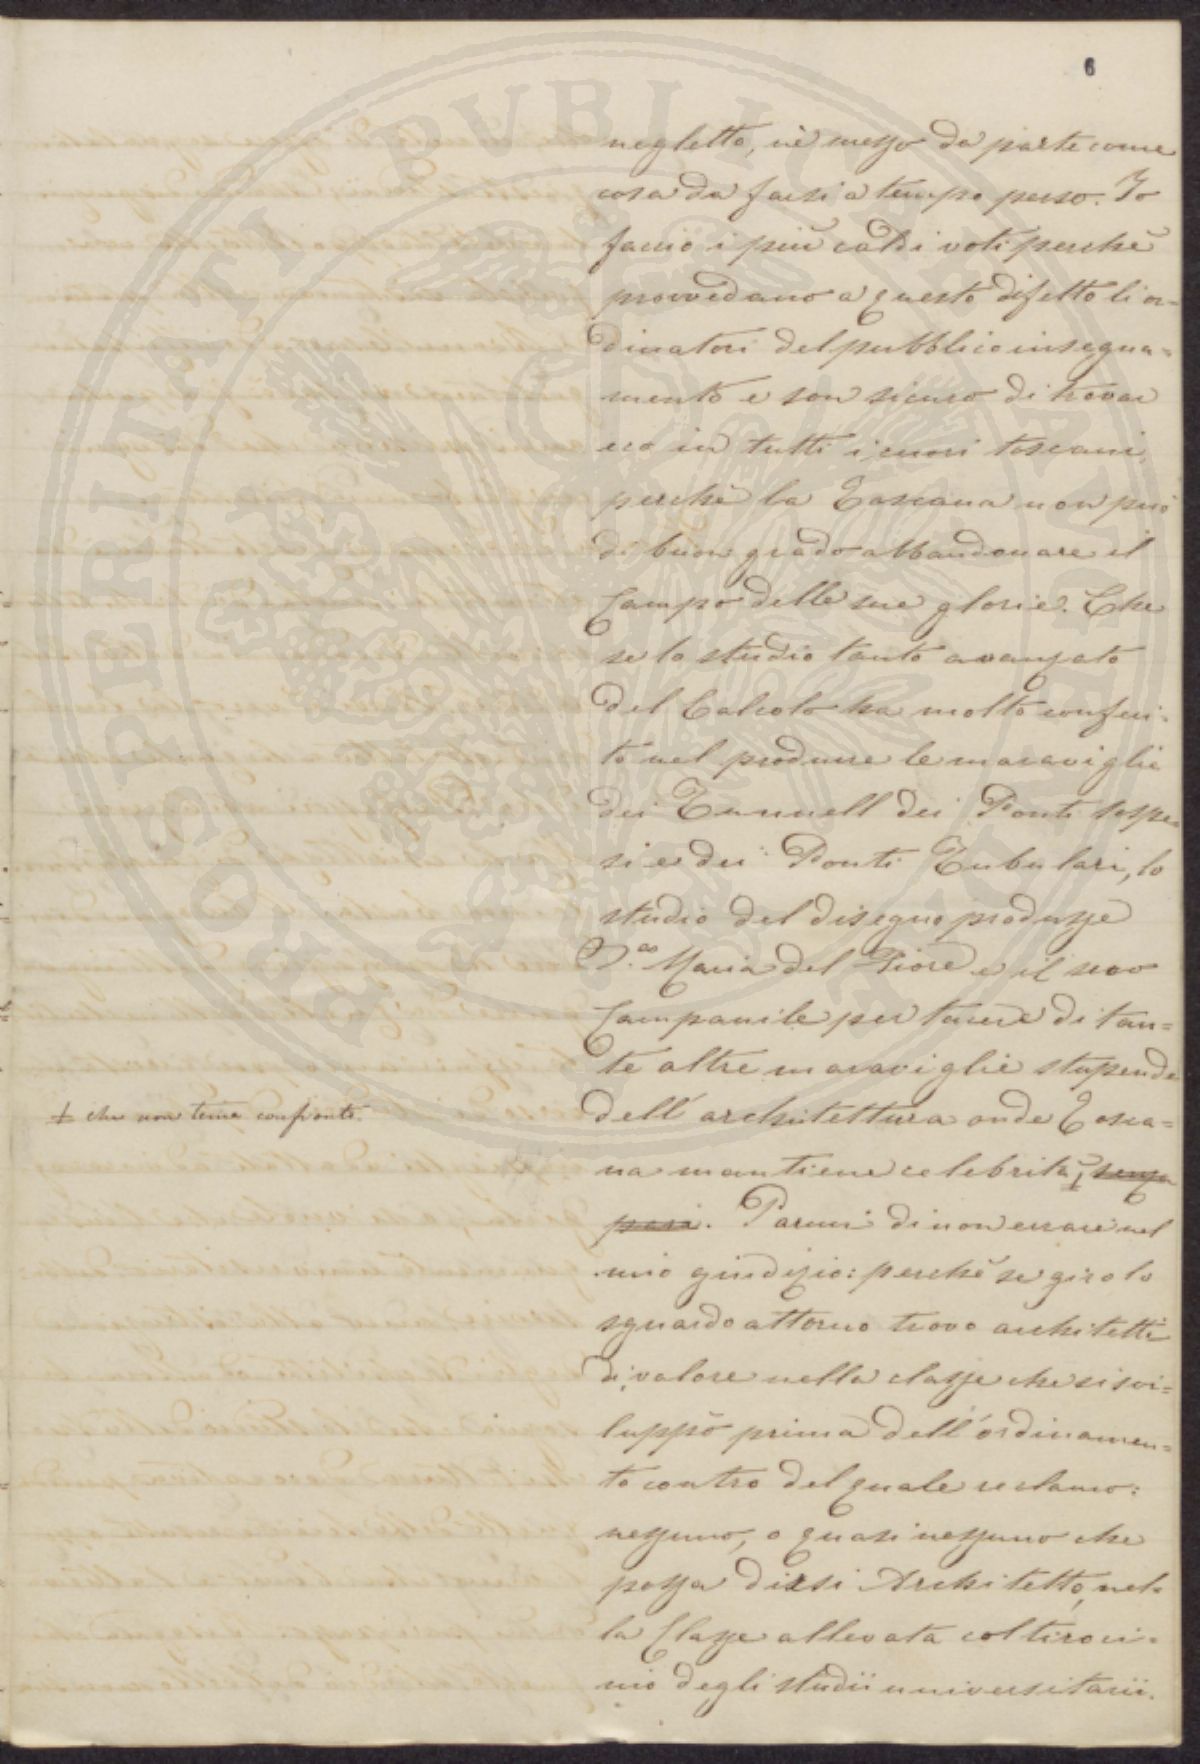 6
negletto, nè messo da parte come
cosa da farsi a tempo perso. Io
faccio i più caldi voti perchè
provvedano a questo difetto li or=
dinatori del pubblico insegna=
mento e son sicuro di trovar
eco in tutti i cuori toscani,
perchè la Toscana non può
di buon grado abbandonare il
Campo delle sue glorie. Che
se lo studio tanto avanzato
del Calcolo ha molto conferi=
to nel produrre le maraviglie
dei Tunnell dei Ponti sospe=
si e dei Ponti Tubulari, lo
studio del disegno produsse
S.ª Maria del Fiore e il suo
Campanile per tacere di tan=
te altre maraviglie stupende
dell'architettura onde Tosca=
na mantiene celebrità, senza
pari. Parmi di non errare nel
mio giudizio: perchè se giro lo
sguardo attorno trovo architetti
di valore nella classe che si svi=
luppò prima dell'ordinamen=
to contro del quale reclamo:
nessuno, o quasi nessuno che
possa dirsi Architetto, nel=
la Classe allevata col tiroci=
nio degli studii universitarii.
+ che non teme confronti.
PROSPERITATI PVBLICAE